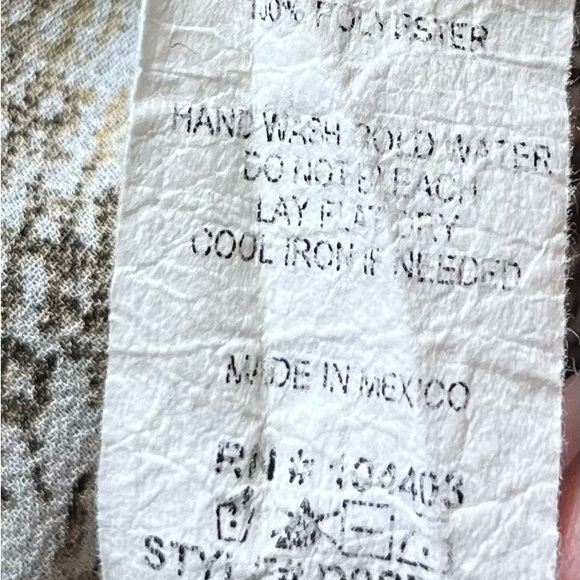 100% POLYESTER
HAND WASH COLD WATER
DO NOT BLEACH
LAY FLAT DRY
COOL IRON IF NEEDED
MADE IN MEXICO
RN # 104403